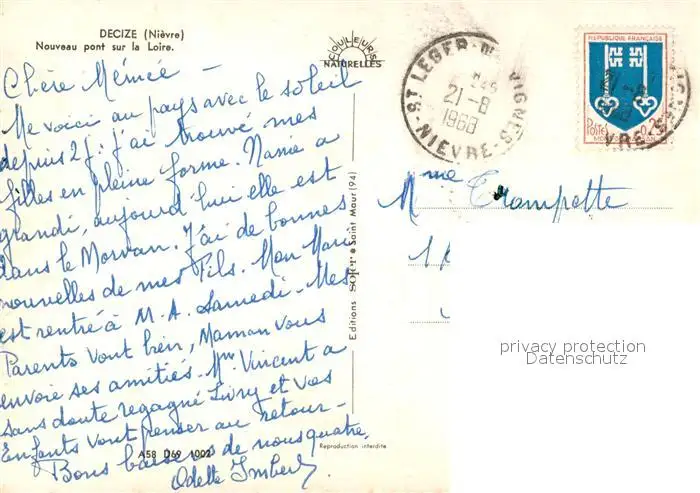 DECIZE (Nièvre)
Nouveau pont sur la Loire.
COULEURS
NATURELLES
Chère Mémée -
Me voici au pays avec le soleil
depuis 2 j. j'ai trouvé mes
filles en pleine forme. Nanie a
grandi, aujourd'hui elle est
dans le Morvan. J'ai de bonnes
nouvelles de mes Fils. Mon Mari
est rentré à M. A. Samedi. Mes
Parents vont bien, Maman vous
envoie ses amitiés. Mme Vincent a
sans doute regagné Livry et vos
Enfants vont penser au retour -
Bons baisers de nous quatre.
Odette Imbert
A58 D69 1002
Reproduction interdite
Editions SOFER • Saint Maur (94)
ST LEGER
21-8
1968
NIEVRE
REPUBLIQUE FRANÇAISE
Postes
Mme Trompette
privacy protection
Datenschutz